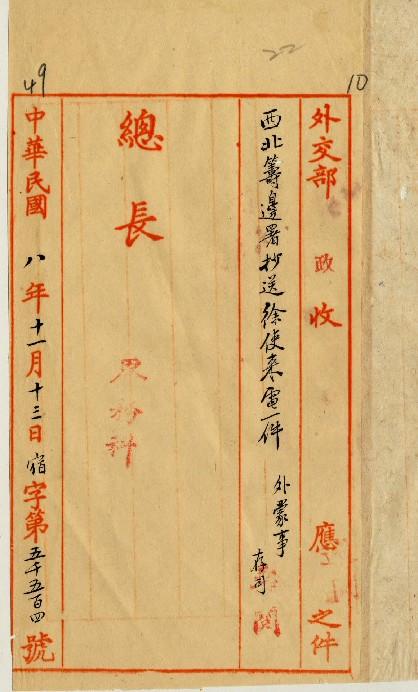 22
10
49
外交部 政 收 應 之件
西北籌邊署抄送徐使春電一件 外蒙事
存司
閱
總長
界務科
中華民國 八年十一月十三日 宿字第五千五百四號